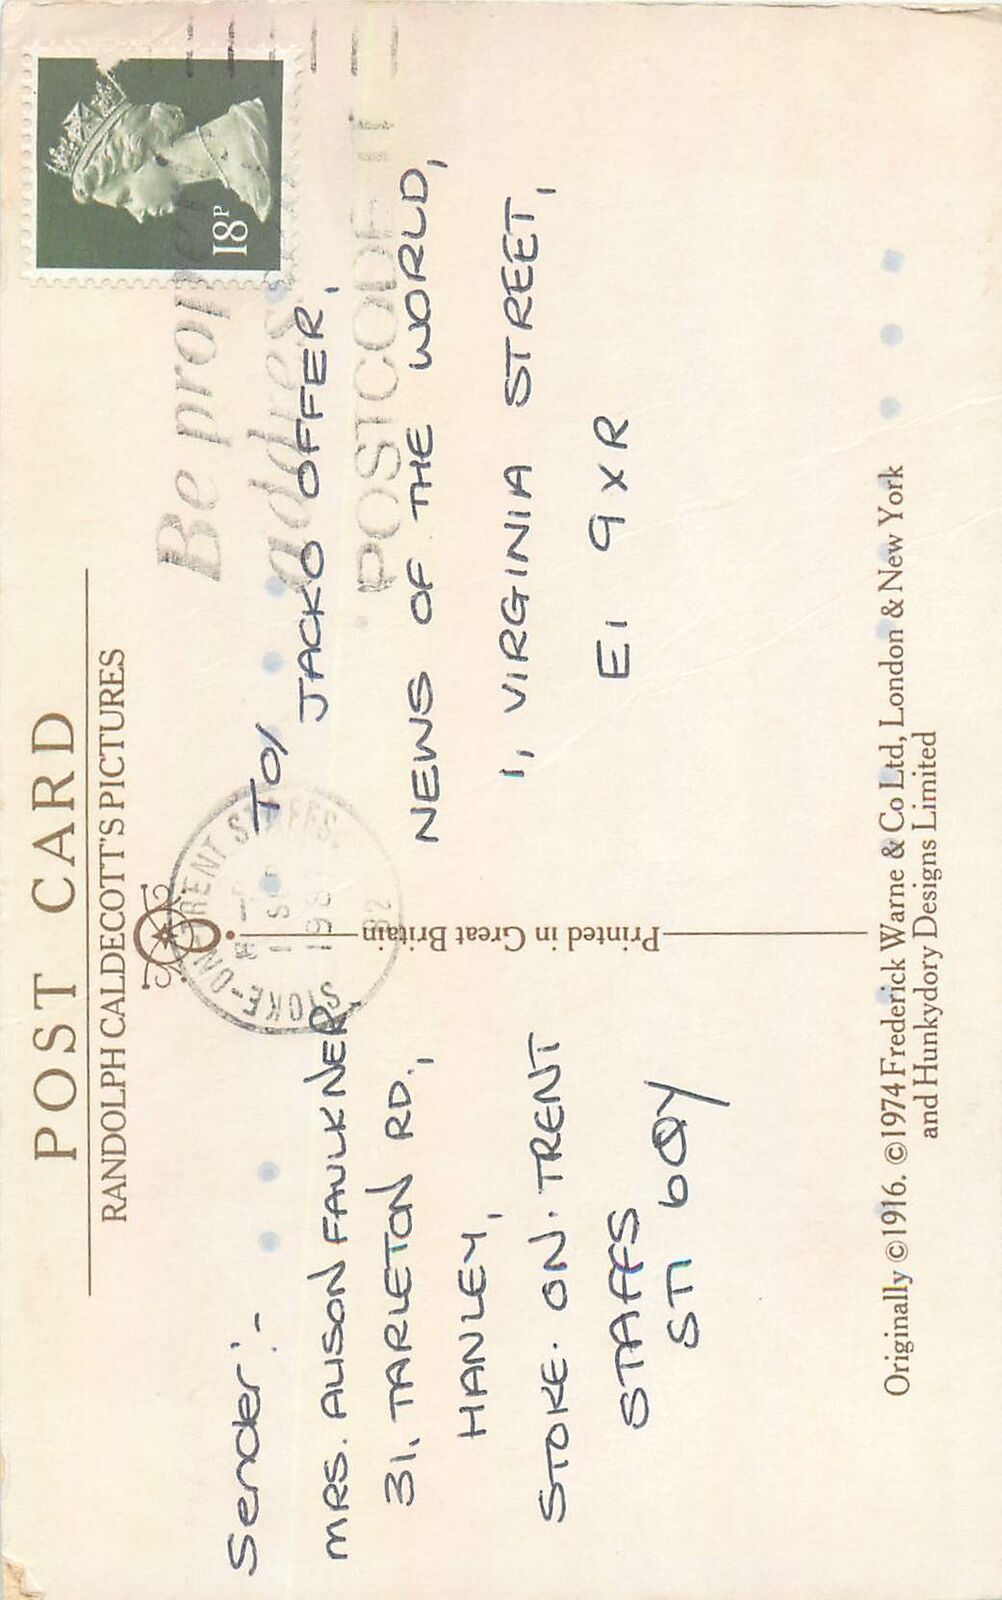 POST CARD
RANDOLPH CALDECOTT'S PICTURES
18P
Be
POSTCODE IT
STOKE-ON-TRENT STAFFS.
Sender:-
MRS. ALISON FAULKNER,
31, TARLETON RD.,
HANLEY,
STOKE. ON. TRENT
STAFFS
ST1 6QY
Printed in Great Britain
TO/
JACKO OFFER,
NEWS OF THE WORLD,
1, VIRGINIA STREET,
E1 9XR
Originally ©1916. ©1974 Frederick Warne & Co Ltd, London & New York
and Hunkydory Designs Limited